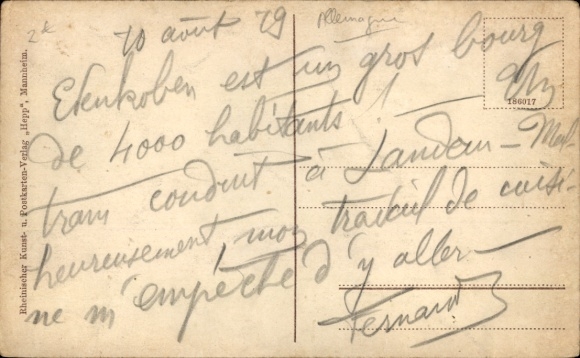 2e
Allemagne
10 août 19
Edenkoben est un gros bourg
de 4000 habitants! — Un
tram conduit à Landau — Mal-
heureusement mon travail de cuisi-
ne m'empêche d'y aller —
Fernand
186017
Rheinischer Kunst- u. Postkarten-Verlag „Hepp", Mannheim.